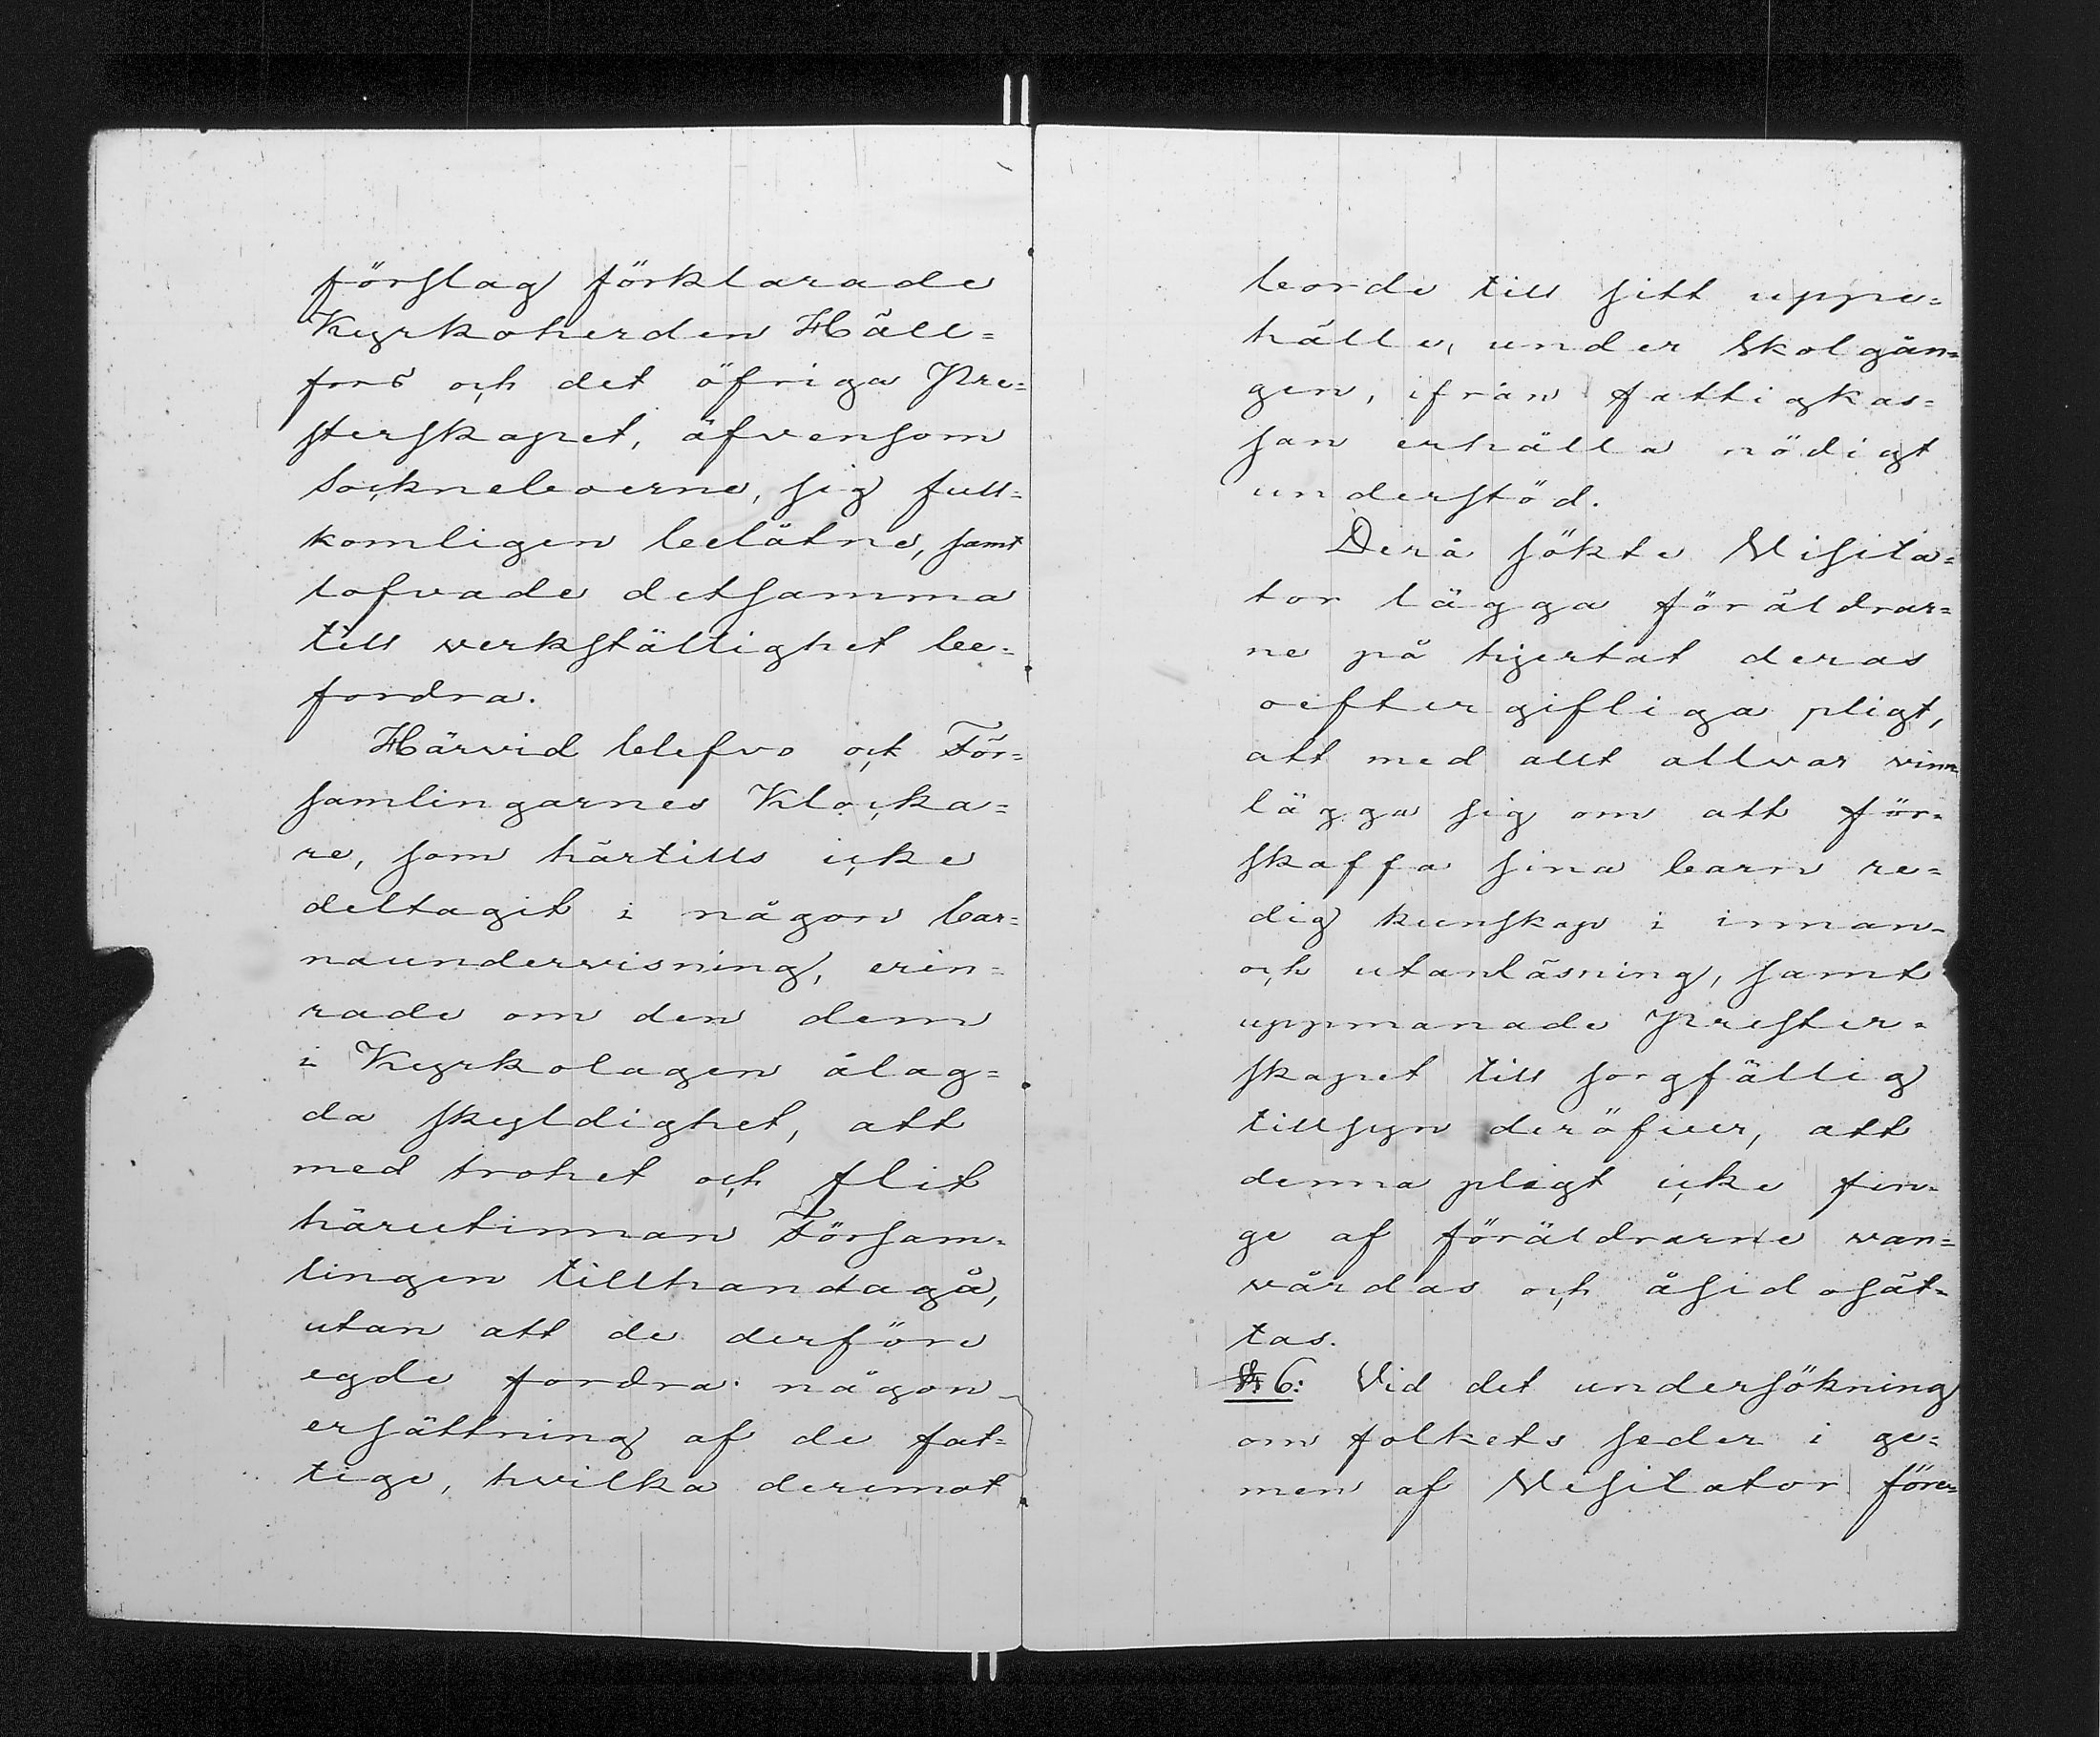 förslag förklarade
Kyrkoherden Häll=
fors och det öfriga Pre=
sterskapet, äfvensom
Sockneboerne, sig full=
komligen belåtne, samt
lofvade detsamma
till verkställighet be=
fordra.
Härvid blefvo ock För=
samlingarnes Klocka=
re, som härtills icke
deltagit i någon bar=
naundervisning, erin=
rade om den dem
i Kyrkolagen ålag=
da skyldighet, att
med trohet och flit
härutinnan Försam=
lingen tillhandagå,
utan att de derföre
egde fordra någon
ersättning af de fat=
tige, hvilka deremot
borde till sitt uppe=
hälle, under skolgån=
gen, ifrån fattigkas=
san erhålla nödigt
understöd.
Derå sökte Visita=
tor lägga föräldrar=
ne på hjertat deras
oeftergifliga pligt,
att med allt allvar vinn
lägga sig om att för=
skaffa sina barn re=
dig kunskap i innan-
och utanläsning, samt
uppmanade Prester=
skapet till sorgfällig
tillsyn deröfver, att
denna pligt icke fin=
ge af föräldrarne van=
vårdas och åsidosät=
tas.
§ 6: Vid det undersökning
om folkets seder i ge=
men af Visitator före=